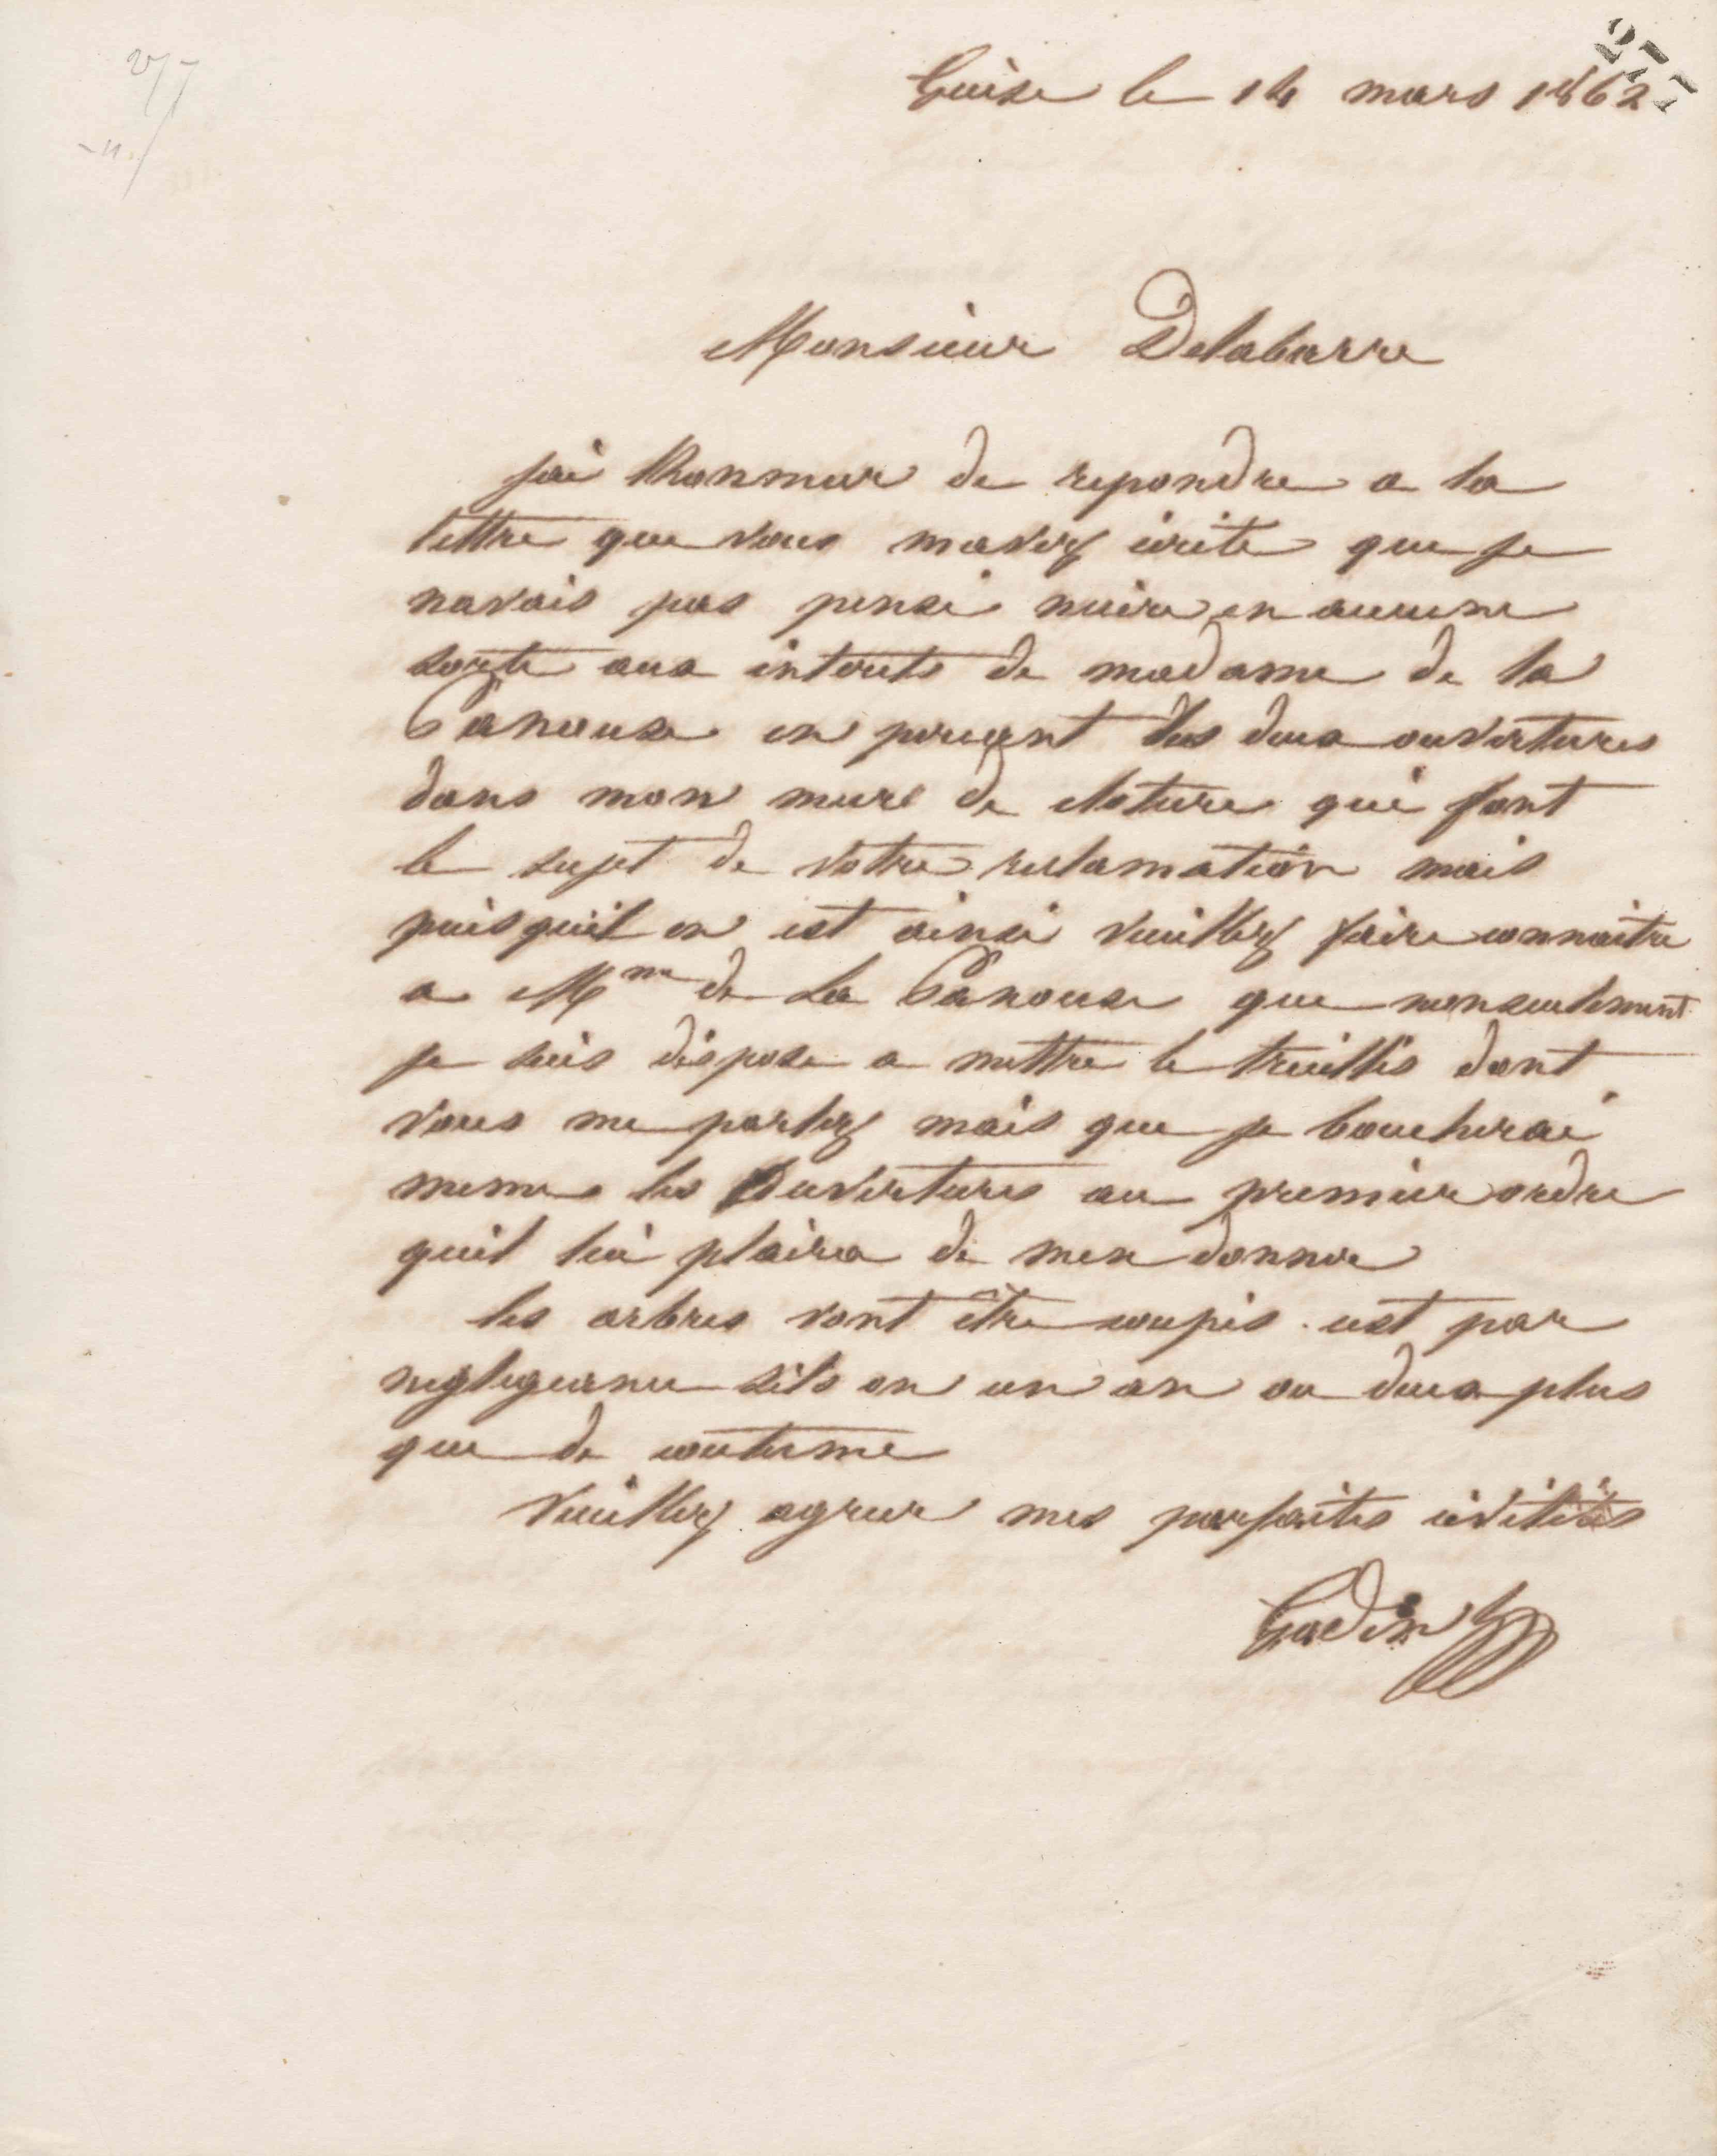 277
277
Guise le 14 mars 1862
Monsieur Delabarre
jai lhonneur de repondre a la
lettre que vous mavez écrite que je
navais pas pensé nuire en aucune
sorte aux intérets de madame de la
Panouse en perçant les deux ouvertures
dans mon mure de cloture qui font
le sujet de votre reclamation mais
puisquil en est ainsi veuillez faire connaitre
a Mme de La Panouse que nonseulement
je suis disposé a mettre le treillis dont
vous me parlez mais que je boucherai
meme les Ouvertures au premier ordre
quil lui plaira de men donner
les arbres vont être coupés . cest par
negligeance sils on un an ou deux plus
que de coutume
Veuillez agréer mes parfaites civilités
Godin